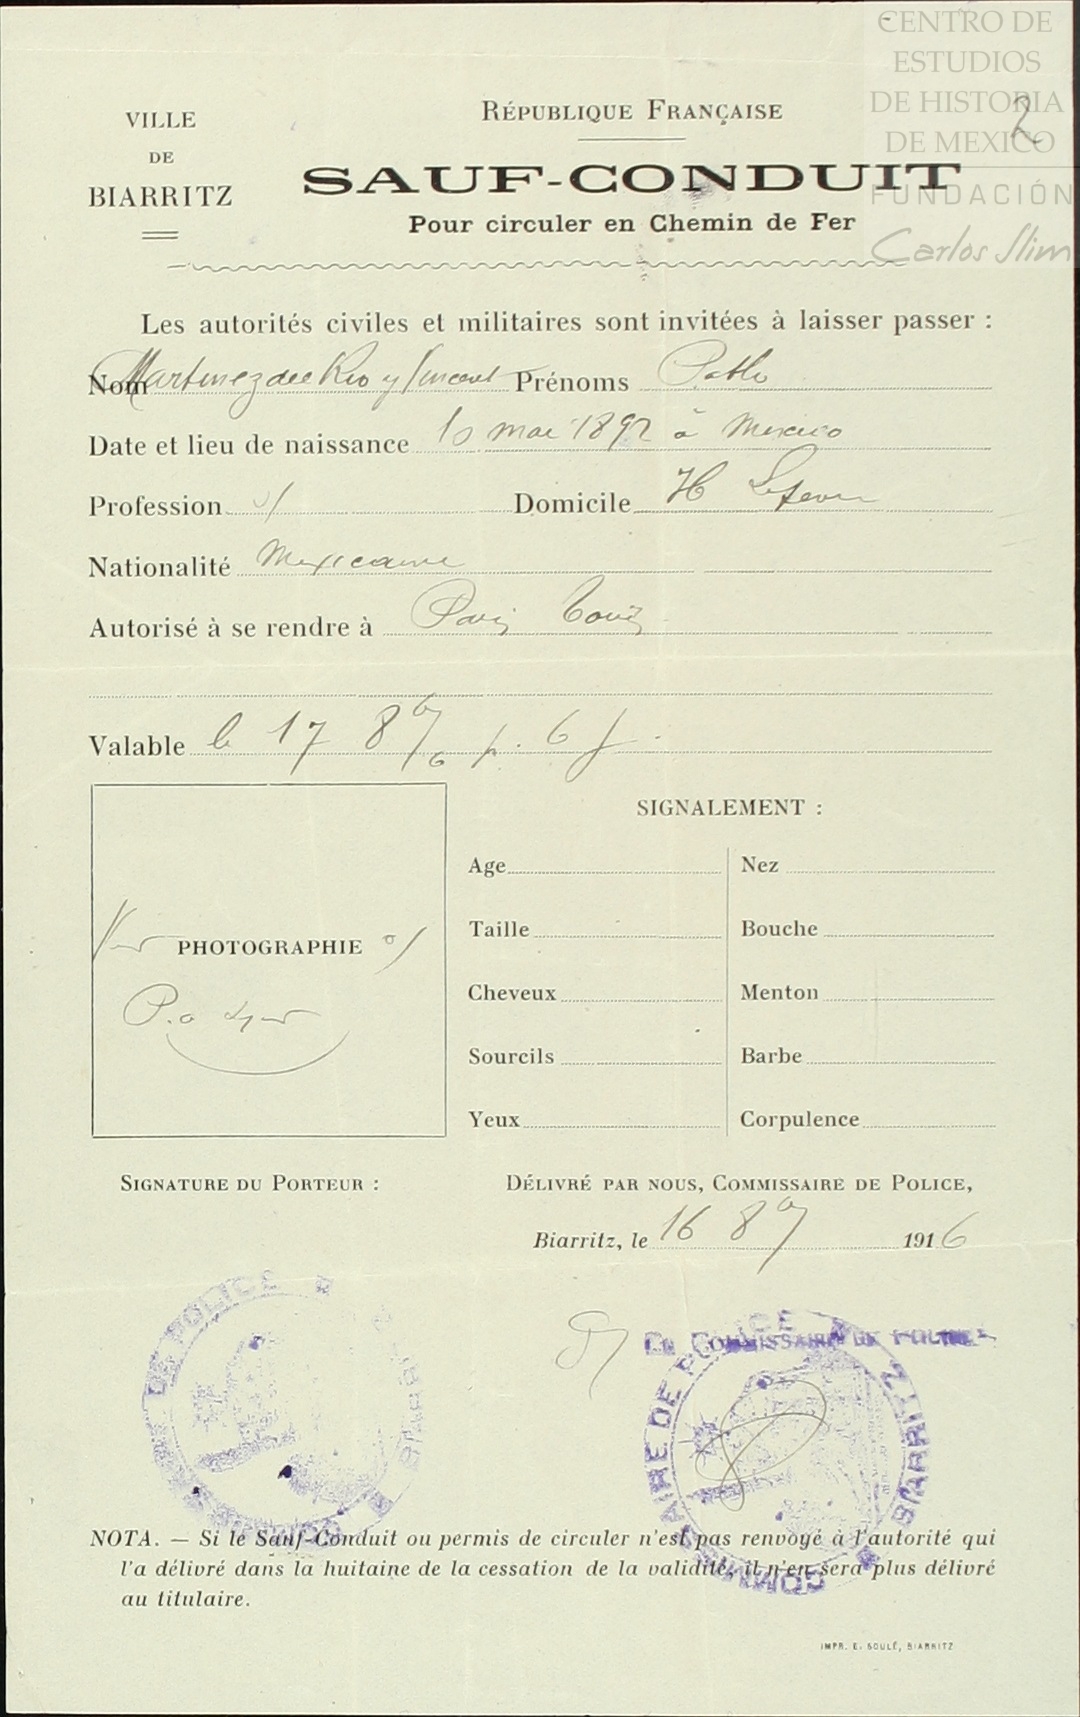 CENTRO DE
ESTUDIOS
DE HISTORIA
DE MEXICO
FUNDACIÓN
Carlos Slim
2
VILLE
DE
BIARRITZ
RÉPUBLIQUE FRANÇAISE
SAUF-CONDUIT
Pour circuler en Chemin de Fer
Les autorités civiles et militaires sont invitées à laisser passer :
Nom Martinez del Rio y Vincent Prénoms Pablo
Date et lieu de naissance 10 mai 1892 à Mexico
Profession s/ Domicile H
Nationalité Mexicaine
Autorisé à se rendre à Paris
Valable le 17 8bre 6 p. 6 j.
SIGNALEMENT :
PHOTOGRAPHIE
Age Nez
Taille Bouche
Cheveux Menton
Sourcils Barbe
Yeux Corpulence
SIGNATURE DU PORTEUR :
DÉLIVRÉ PAR NOUS, COMMISSAIRE DE POLICE,
Biarritz, le 16 8bre 1916
DE POLICE
LE COMMISSAIRE DE POLICE
COMMISSAIRE DE POLICE BIARRITZ
NOTA. — Si le Sauf-Conduit ou permis de circuler n'est pas renvoyé à l'autorité qui
l'a délivré dans la huitaine de la cessation de la validité, il n'en sera plus délivré
au titulaire.
IMPR. E. SOULÉ, BIARRITZ